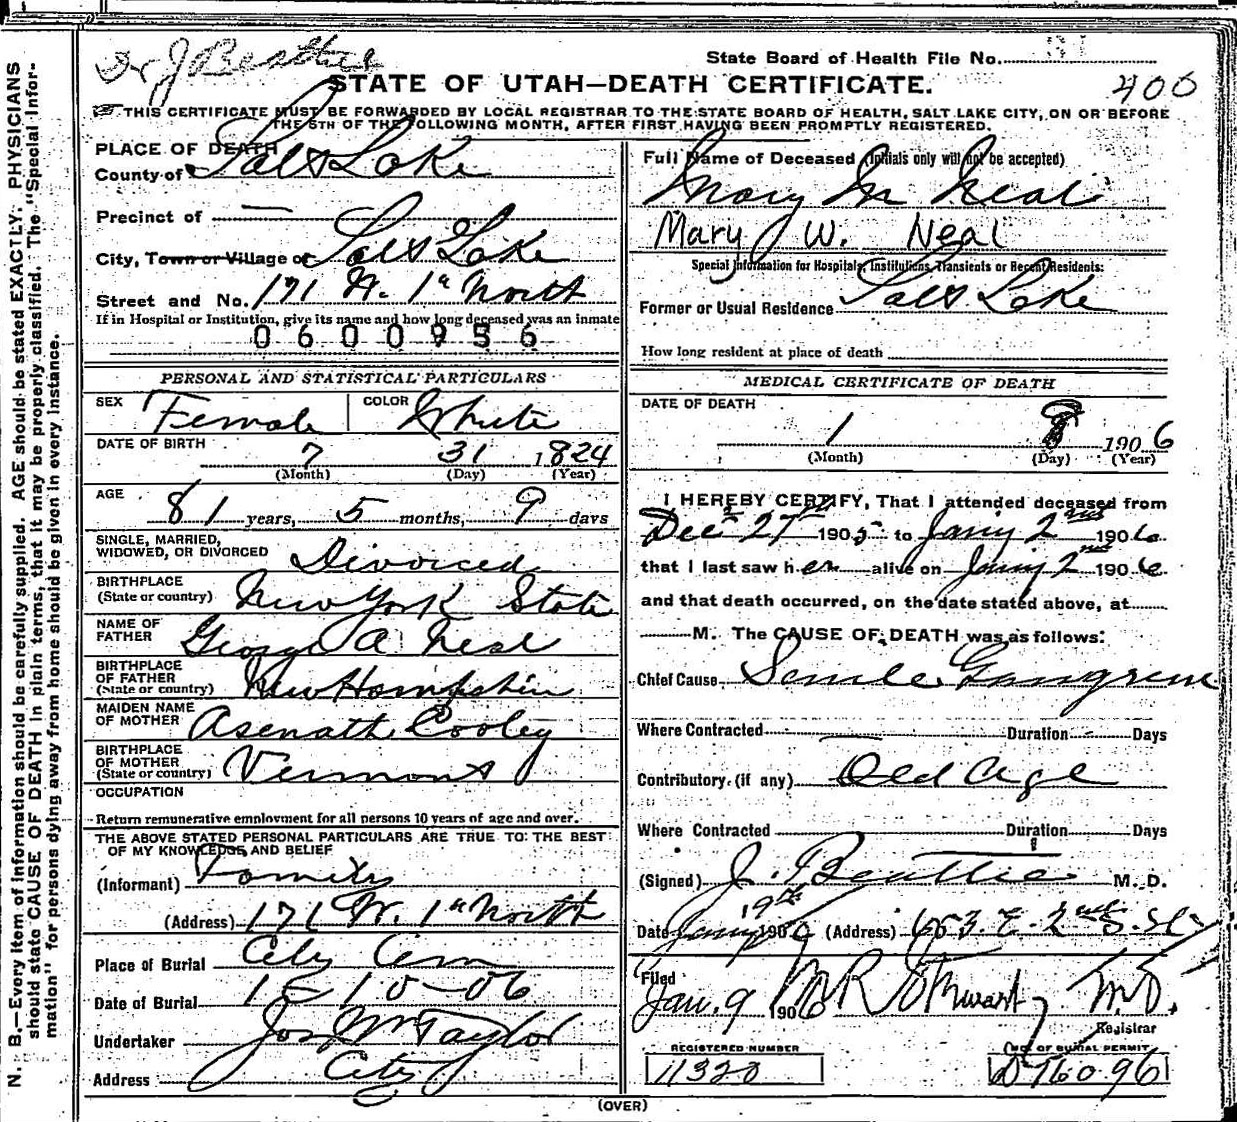 Dr J Beattie
State Board of Health File No. 31
400
STATE OF UTAH—DEATH CERTIFICATE.
THIS CERTIFICATE MUST BE FORWARDED BY LOCAL REGISTRAR TO THE STATE BOARD OF HEALTH, SALT LAKE CITY, ON OR BEFORE
THE 5TH OF THE FOLLOWING MONTH, AFTER FIRST HAVING BEEN PROMPTLY REGISTERED.
N. B.—Every item of information should be carefully supplied. AGE should be stated EXACTLY. PHYSICIANS
should state CAUSE OF DEATH in plain terms, that it may be properly classified. The "Special Infor-
mation" for persons dying away from home should be given in every instance.
PLACE OF DEATH
County of Salt Lake
Precinct of —
City, Town or Village of Salt Lake
Street and No. 171 W. 1st North
If in Hospital or Institution, give its name and how long deceased was an inmate
0600956
PERSONAL AND STATISTICAL PARTICULARS
SEX Female COLOR White
DATE OF BIRTH 7 31 1824
(Month) (Day) (Year)
AGE 81 years, 5 months, 9 days
SINGLE, MARRIED,
WIDOWED, OR DIVORCED Divorced
BIRTHPLACE
(State or country) New York State
NAME OF
FATHER George A Neal
BIRTHPLACE
OF FATHER
(State or country) New Hampshire
MAIDEN NAME
OF MOTHER Asenath Cooley
BIRTHPLACE
OF MOTHER
(State or country) Vermont
OCCUPATION
Return remunerative employment for all persons 10 years of age and over.
THE ABOVE STATED PERSONAL PARTICULARS ARE TRUE TO THE BEST
OF MY KNOWLEDGE AND BELIEF
(Informant) Family
(Address) 171 W. 1st North
Place of Burial City Cem
Date of Burial 1-10-06
Undertaker Jos Wm Taylor
Address City
Full Name of Deceased (Initials only will not be accepted)
Mary W Neal
Mary W. Neal
Special Information for Hospitals, Institutions, Transients or Recent Residents:
Former or Usual Residence Salt Lake
How long resident at place of death
MEDICAL CERTIFICATE OF DEATH
DATE OF DEATH
1 8 1906
(Month) (Day) (Year)
I HEREBY CERTIFY, That I attended deceased from
Dec 27th 1905 to Jany 2nd 1906
that I last saw her alive on Jany 2nd 1906
and that death occurred, on the date stated above, at
M. The CAUSE OF DEATH was as follows:
Chief Cause Senile Gangrene
Where Contracted Duration Days
Contributory (if any) Old Age
Where Contracted Duration Days
(Signed) J. Beattie M. D.
Date Jany 9th 1906 (Address) 653. E. 2nd S. St
Filed
Jan. 9 1906 M.D.
Registrar
REGISTERED NUMBER
11320
NO. OF BURIAL PERMIT
D 76096
(OVER)